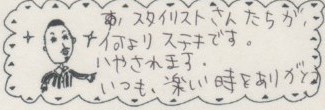 スタイリストさんたちが、
よりステキです。
いやされます。
いつも、楽しい時をありがと